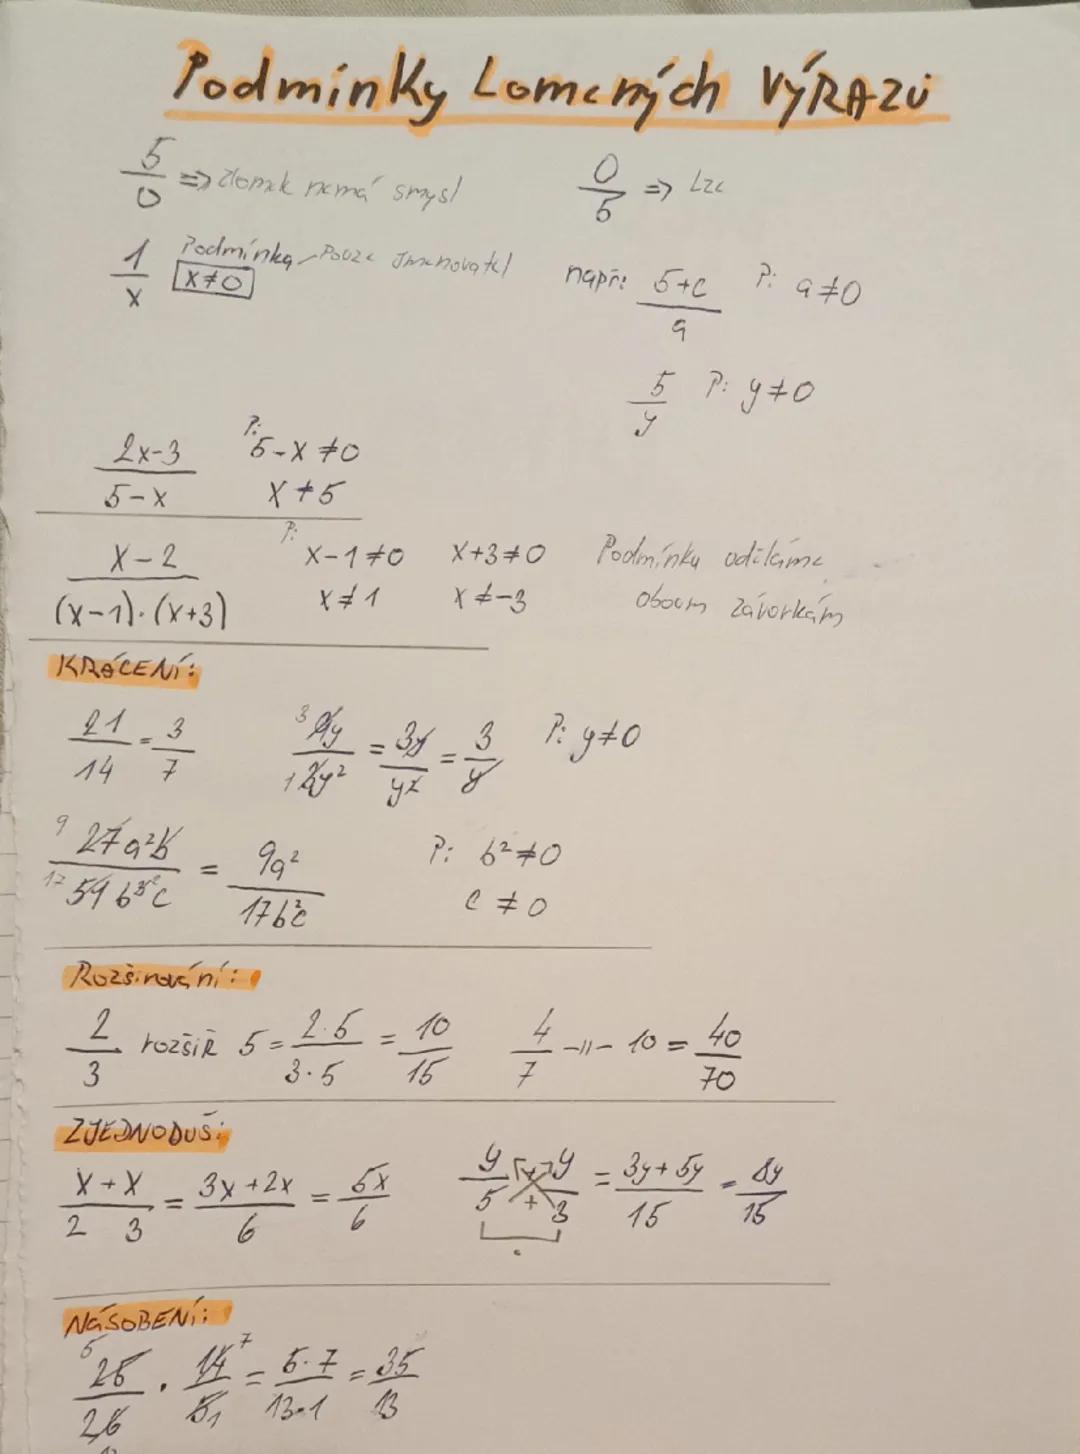 Podmínky Lomených VÝRAZŮ
5/0 => zlomek nemá smysl    0/5 => Lze
1/x Podmínka - Pouze Jmenovatel x≠0    např: 5+c/a P: a≠0
5/y P: y≠0
2x-3/5-x P: 5-x≠0
x≠5
x-2/(x-1)·(x+3) P: x-1≠0 x+3≠0 Podmínku uděláme
x≠1 x≠-3 oboum závorkám
KRÁCENÍ:
21/14 = 3/7    3 9y/1 3y² = 3y/y² = 3/y P: y≠0
9 27a²b/17 54b³²c = 9a²/17b²c P: b²≠0
c≠0
Rozšiřování:
2/3 rozšiŘ 5 = 2·5/3·5 = 10/15    4/7 -||- 10 = 40/70
ZJEDNODUŠ:
x/2 + x/3 = 3x+2x/6 = 5x/6    y/5 + y/3 = 3y+5y/15 = 8y/15
NÁSOBENÍ:
5 25/26 · 14 7/5 1 = 5·7/13·1 = 35/13